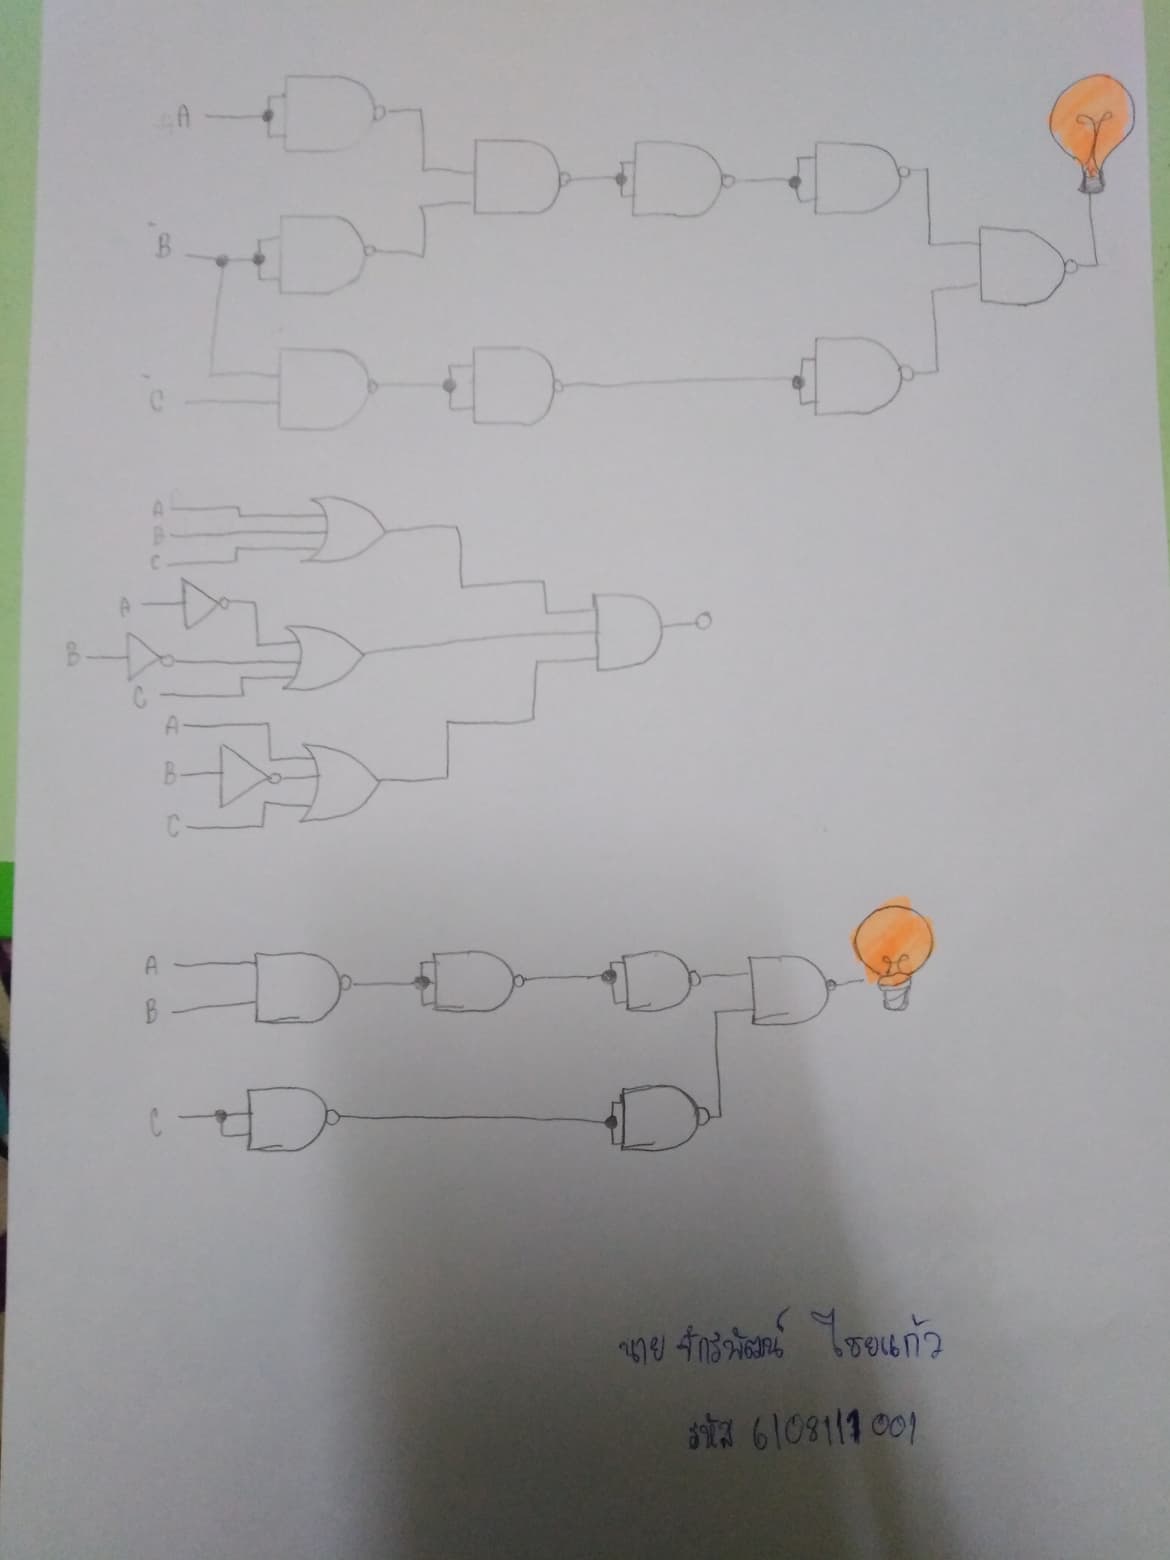 A
B
C
A
B
C
A
B
C
A
B
C
A
B
C
นาย จักรพัฒน์ ไชยแก้ว
รหัส 6108111001